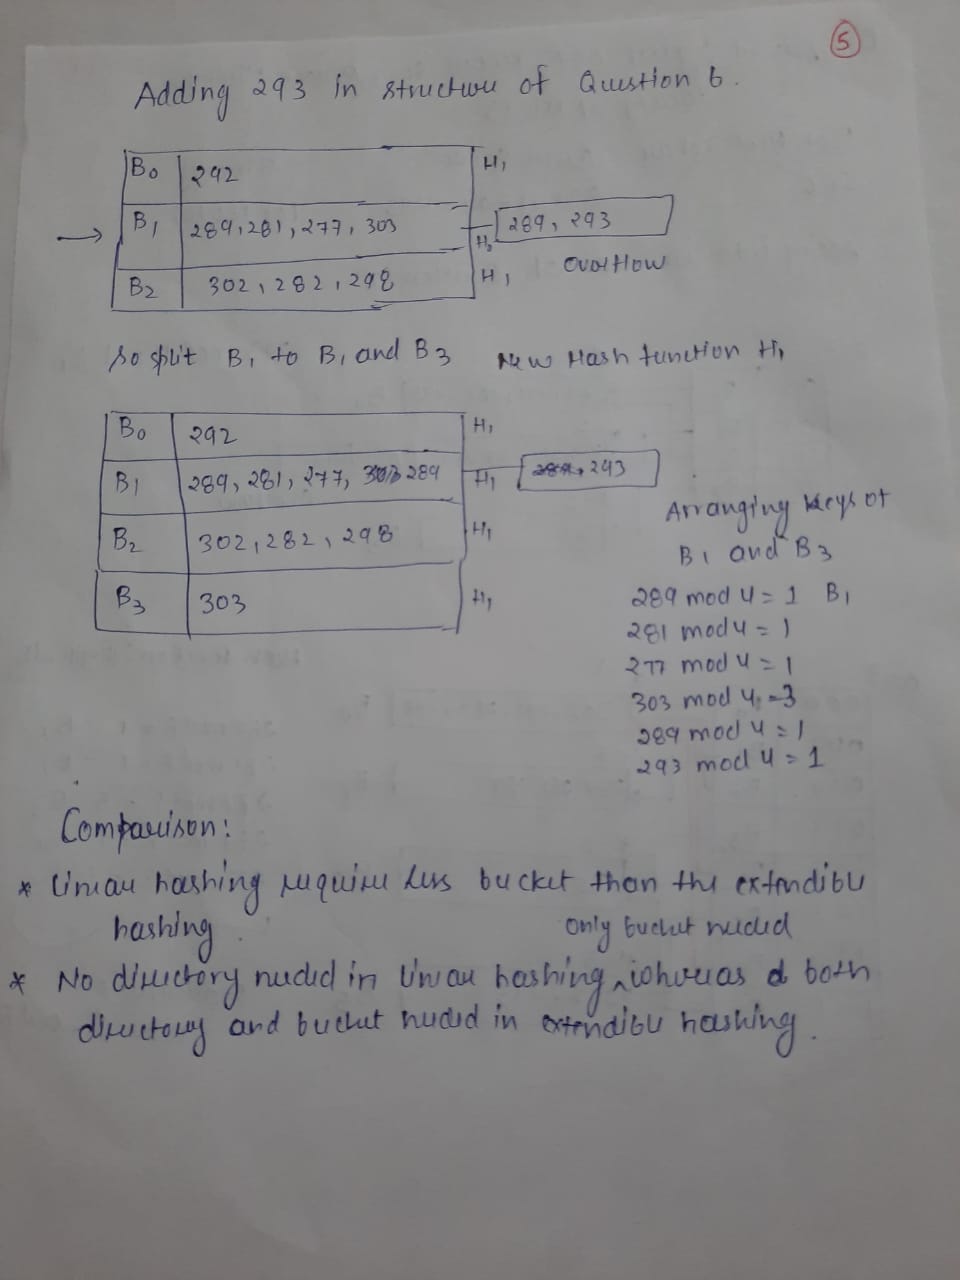 5
Adding 293 in structure of Question 6.
B0 292 H1
B1 289, 281, 277, 303 H0 289, 293
B2 302, 282, 298 H1 overflow
So split B1 to B1 and B3 New Hash function H1
B0 292 H1
B1 289, 281, 277, 303 289 H1 289, 293
B2 302, 282, 298 H1
B3 303 H1
Arranging keys of
B1 and B3
289 mod 4 = 1 B1
281 mod 4 = 1
277 mod 4 = 1
303 mod 4 = 3
289 mod 4 = 1
293 mod 4 = 1
Comparison:
* Linear hashing require less bucket than the extendible
hashing.
only bucket needed
* No directory needed in linear hashing, whereas d both
directory and bucket needed in extendible hashing.